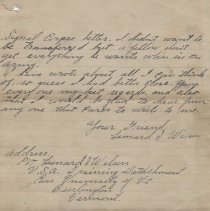 Signal Corps better. I didn't want to
be transferred but a fellow don't
get everything he wants when in the
army.
I have wrote about all I can think
of so guess I had better close. Give
every one my best regards and also
that I would be glad to hear from
any one that cares to write to me.
Your Friend,
Leonard S Wilson
address,
Pvt Leonard S Wilson
U.S.A. Training Detachment
University of Vt
Burlington
Vermont.